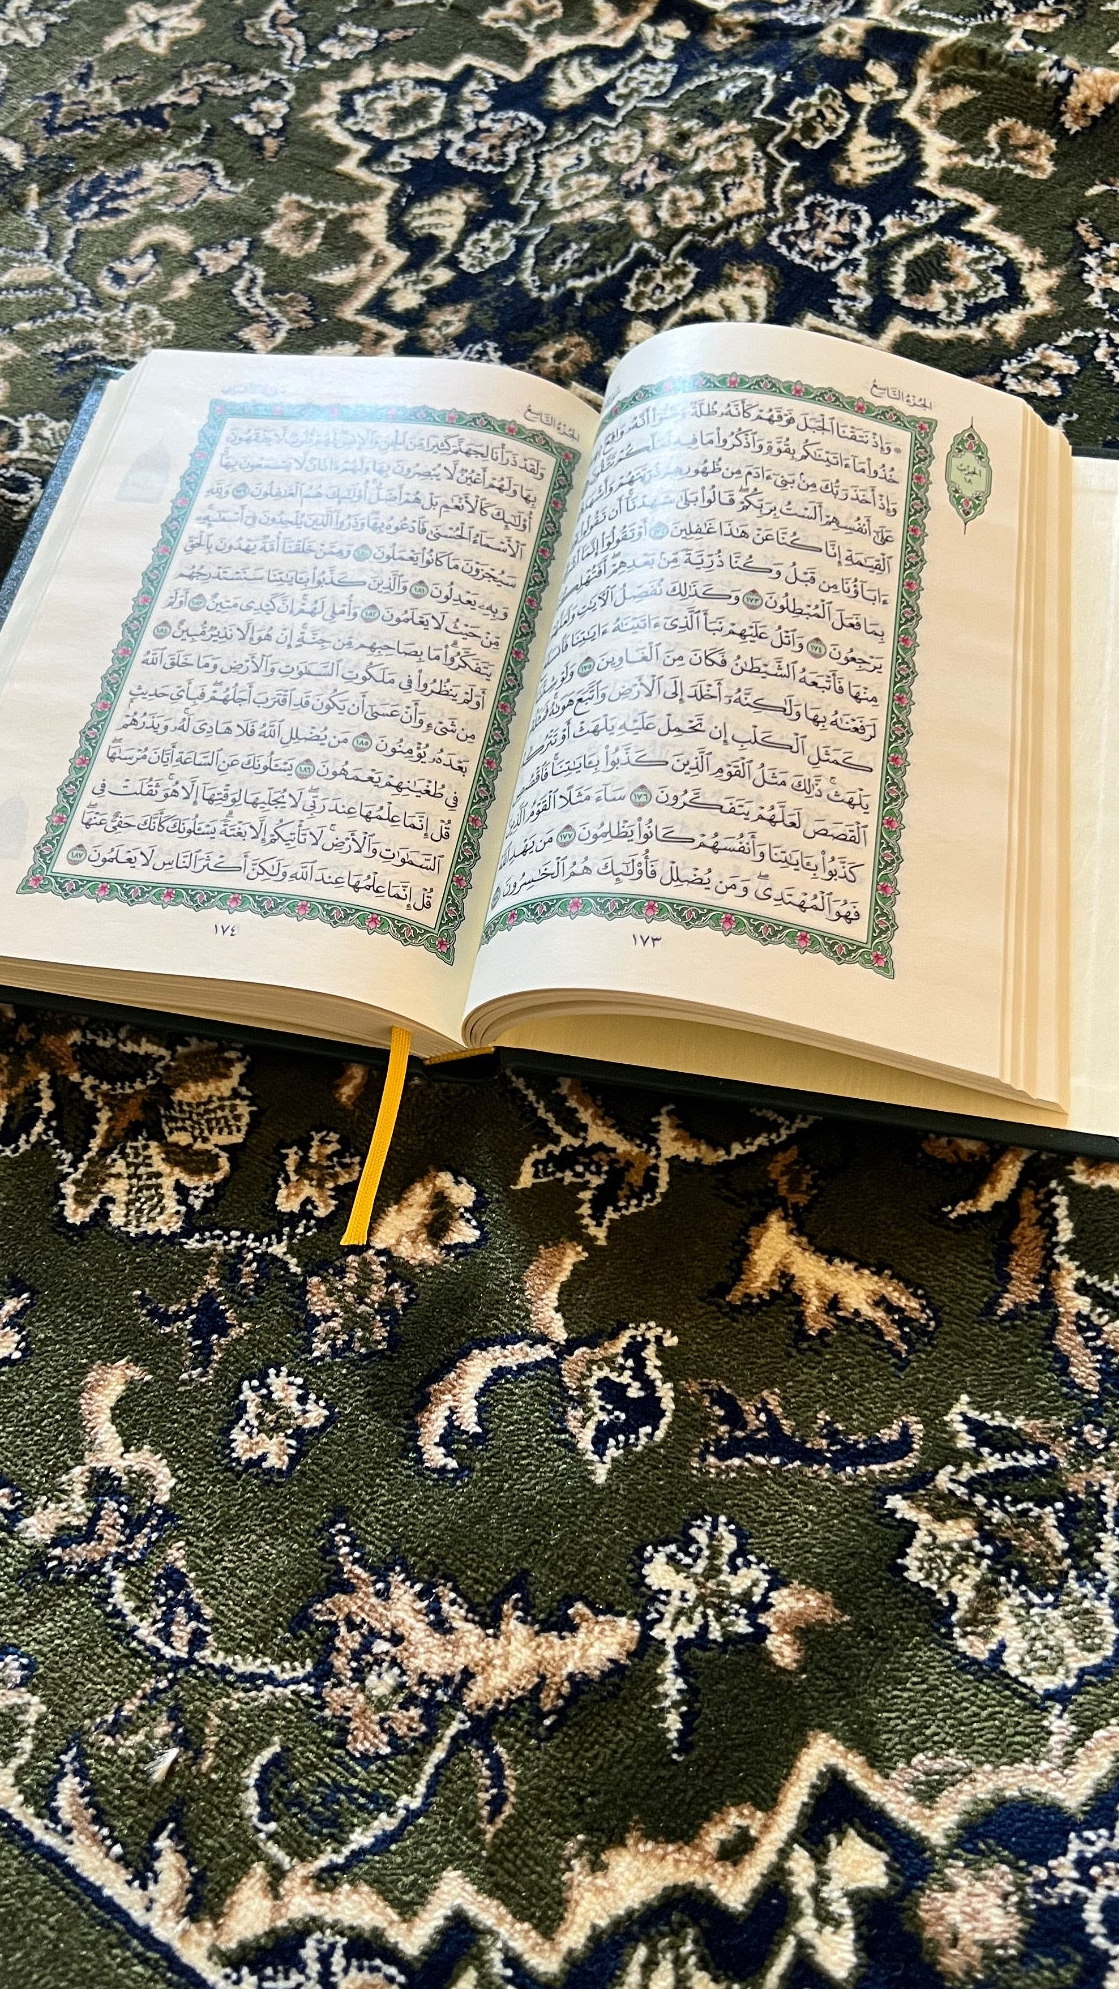 الجُزْءُ التَّاسِعُ
۞ وَإِذْ نَتَقْنَا ٱلْجَبَلَ فَوْقَهُمْ كَأَنَّهُۥ ظُلَّةٌ وَظَنُّوٓا۟ أَنَّهُۥ وَاقِعٌۢ
خُذُوا۟ مَآ ءَاتَيْنَٰكُم بِقُوَّةٍ وَٱذْكُرُوا۟ مَا فِيهِ لَعَلَّكُمْ
وَإِذْ أَخَذَ رَبُّكَ مِنۢ بَنِىٓ ءَادَمَ مِن ظُهُورِهِمْ ذُرِّيَّتَهُمْ
عَلَىٰٓ أَنفُسِهِمْ أَلَسْتُ بِرَبِّكُمْ ۖ قَالُوا۟ بَلَىٰ ۛ شَهِدْنَآ ۛ أَن تَقُولُوا۟
ٱلْقِيَٰمَةِ إِنَّا كُنَّا عَنْ هَٰذَا غَٰفِلِينَ ١٧٢ أَوْ تَقُولُوٓا۟ إِنَّمَآ
ءَابَآؤُنَا مِن قَبْلُ وَكُنَّا ذُرِّيَّةً مِّنۢ بَعْدِهِمْ ۖ
بِمَا فَعَلَ ٱلْمُبْطِلُونَ ١٧٣ وَكَذَٰلِكَ نُفَصِّلُ ٱلْءَايَٰتِ
يَرْجِعُونَ ١٧٤ وَٱتْلُ عَلَيْهِمْ نَبَأَ ٱلَّذِىٓ ءَاتَيْنَٰهُ ءَايَٰتِنَا
مِنْهَا فَأَتْبَعَهُ ٱلشَّيْطَٰنُ فَكَانَ مِنَ ٱلْغَاوِينَ ١٧٥ وَلَوْ
لَرَفَعْنَٰهُ بِهَا وَلَٰكِنَّهُۥٓ أَخْلَدَ إِلَى ٱلْأَرْضِ وَٱتَّبَعَ هَوَىٰهُ ۚ
كَمَثَلِ ٱلْكَلْبِ إِن تَحْمِلْ عَلَيْهِ يَلْهَثْ أَوْ
يَلْهَث ۚ ذَّٰلِكَ مَثَلُ ٱلْقَوْمِ ٱلَّذِينَ كَذَّبُوا۟ بِـَٔايَٰتِنَا ۚ
ٱلْقَصَصَ لَعَلَّهُمْ يَتَفَكَّرُونَ ١٧٦ سَآءَ مَثَلًا ٱلْقَوْمُ
كَذَّبُوا۟ بِـَٔايَٰتِنَا وَأَنفُسَهُمْ كَانُوا۟ يَظْلِمُونَ ١٧٧ مَن يَهْدِ
فَهُوَ ٱلْمُهْتَدِى ۖ وَمَن يُضْلِلْ فَأُو۟لَٰٓئِكَ هُمُ ٱلْخَٰسِرُونَ
١٧٣
الحِزْبُ
١٨
الجُزْءُ التَّاسِعُ
وَلَقَدْ ذَرَأْنَا لِجَهَنَّمَ كَثِيرًا مِّنَ ٱلْجِنِّ وَٱلْإِنسِ ۖ لَهُمْ قُلُوبٌ لَّا يَفْقَهُونَ
بِهَا وَلَهُمْ أَعْيُنٌ لَّا يُبْصِرُونَ بِهَا وَلَهُمْ ءَاذَانٌ لَّا يَسْمَعُونَ بِهَآ ۚ
أُو۟لَٰٓئِكَ كَٱلْأَنْعَٰمِ بَلْ هُمْ أَضَلُّ ۚ أُو۟لَٰٓئِكَ هُمُ ٱلْغَٰفِلُونَ ١٧٩ وَلِلَّهِ
ٱلْأَسْمَآءُ ٱلْحُسْنَىٰ فَٱدْعُوهُ بِهَا ۖ وَذَرُوا۟ ٱلَّذِينَ يُلْحِدُونَ فِىٓ أَسْمَٰٓئِهِۦ ۚ
سَيُجْزَوْنَ مَا كَانُوا۟ يَعْمَلُونَ ١٨٠ وَمِمَّنْ خَلَقْنَآ أُمَّةٌ يَهْدُونَ بِٱلْحَقِّ
وَبِهِۦ يَعْدِلُونَ ١٨١ وَٱلَّذِينَ كَذَّبُوا۟ بِـَٔايَٰتِنَا سَنَسْتَدْرِجُهُم
مِّنْ حَيْثُ لَا يَعْلَمُونَ ١٨٢ وَأُمْلِى لَهُمْ ۚ إِنَّ كَيْدِى مَتِينٌ ١٨٣ أَوَلَمْ
يَتَفَكَّرُوا۟ ۗ مَا بِصَاحِبِهِم مِّن جِنَّةٍ ۚ إِنْ هُوَ إِلَّا نَذِيرٌ مُّبِينٌ ١٨٤
أَوَلَمْ يَنظُرُوا۟ فِى مَلَكُوتِ ٱلسَّمَٰوَٰتِ وَٱلْأَرْضِ وَمَا خَلَقَ ٱللَّهُ
مِن شَىْءٍ وَأَنْ عَسَىٰٓ أَن يَكُونَ قَدِ ٱقْتَرَبَ أَجَلُهُمْ ۖ فَبِأَىِّ حَدِيثٍۭ
بَعْدَهُۥ يُؤْمِنُونَ ١٨٥ مَن يُضْلِلِ ٱللَّهُ فَلَا هَادِىَ لَهُۥ ۚ وَيَذَرُهُمْ
فِى طُغْيَٰنِهِمْ يَعْمَهُونَ ١٨٦ يَسْـَٔلُونَكَ عَنِ ٱلسَّاعَةِ أَيَّانَ مُرْسَىٰهَا ۖ
قُلْ إِنَّمَا عِلْمُهَا عِندَ رَبِّى ۖ لَا يُجَلِّيهَا لِوَقْتِهَآ إِلَّا هُوَ ۚ ثَقُلَتْ فِى
ٱلسَّمَٰوَٰتِ وَٱلْأَرْضِ ۚ لَا تَأْتِيكُمْ إِلَّا بَغْتَةً ۗ يَسْـَٔلُونَكَ كَأَنَّكَ حَفِىٌّ عَنْهَا ۖ
قُلْ إِنَّمَا عِلْمُهَا عِندَ ٱللَّهِ وَلَٰكِنَّ أَكْثَرَ ٱلنَّاسِ لَا يَعْلَمُونَ ١٨٧
١٧٤